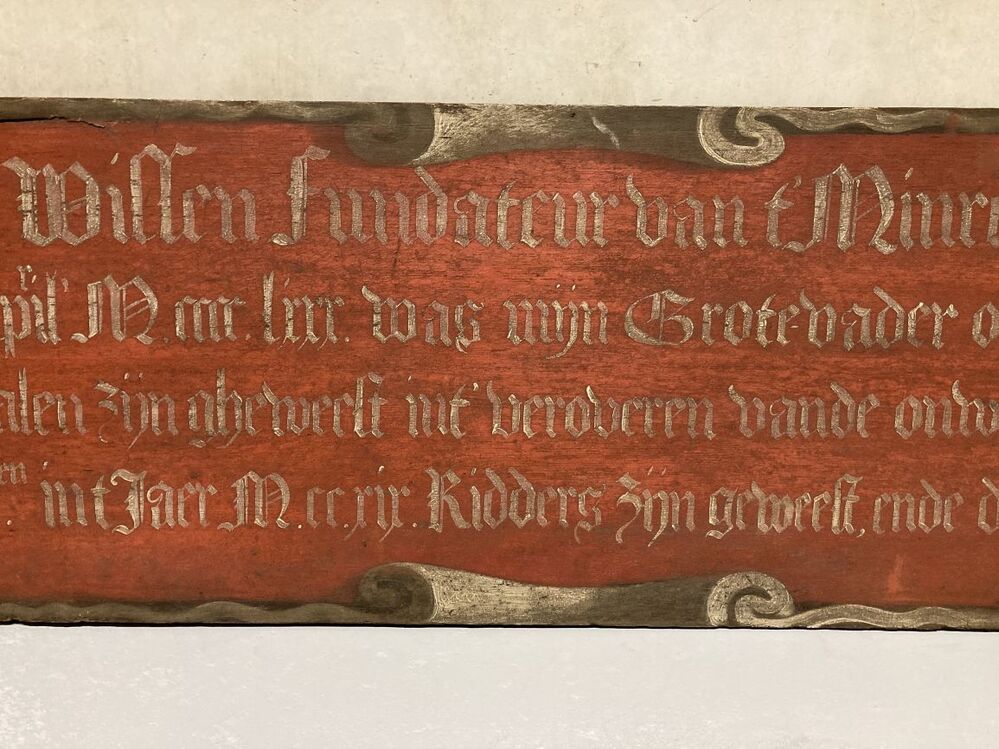 Willen fundateur van t' Minre
pril M.cccc.lxxx. was mijn Grote-vader o
alen zijn gheweest int' veroveren vande onw
en int Jaer M.cc.xix. Ridders zijn geweest, ende d